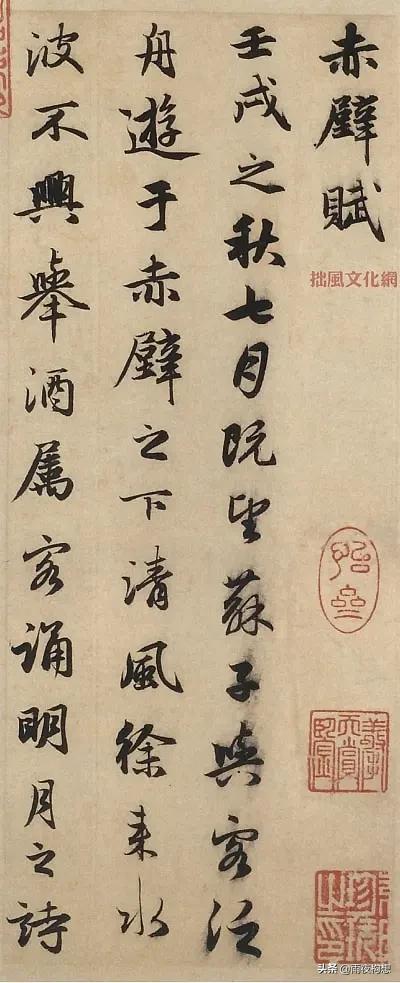 赤壁賦
壬戌之秋七月既望蘇子與客泛
舟遊于赤壁之下清風徐来水
波不興舉酒属客誦明月之詩
拙風文化網
头条 @雨夜构想